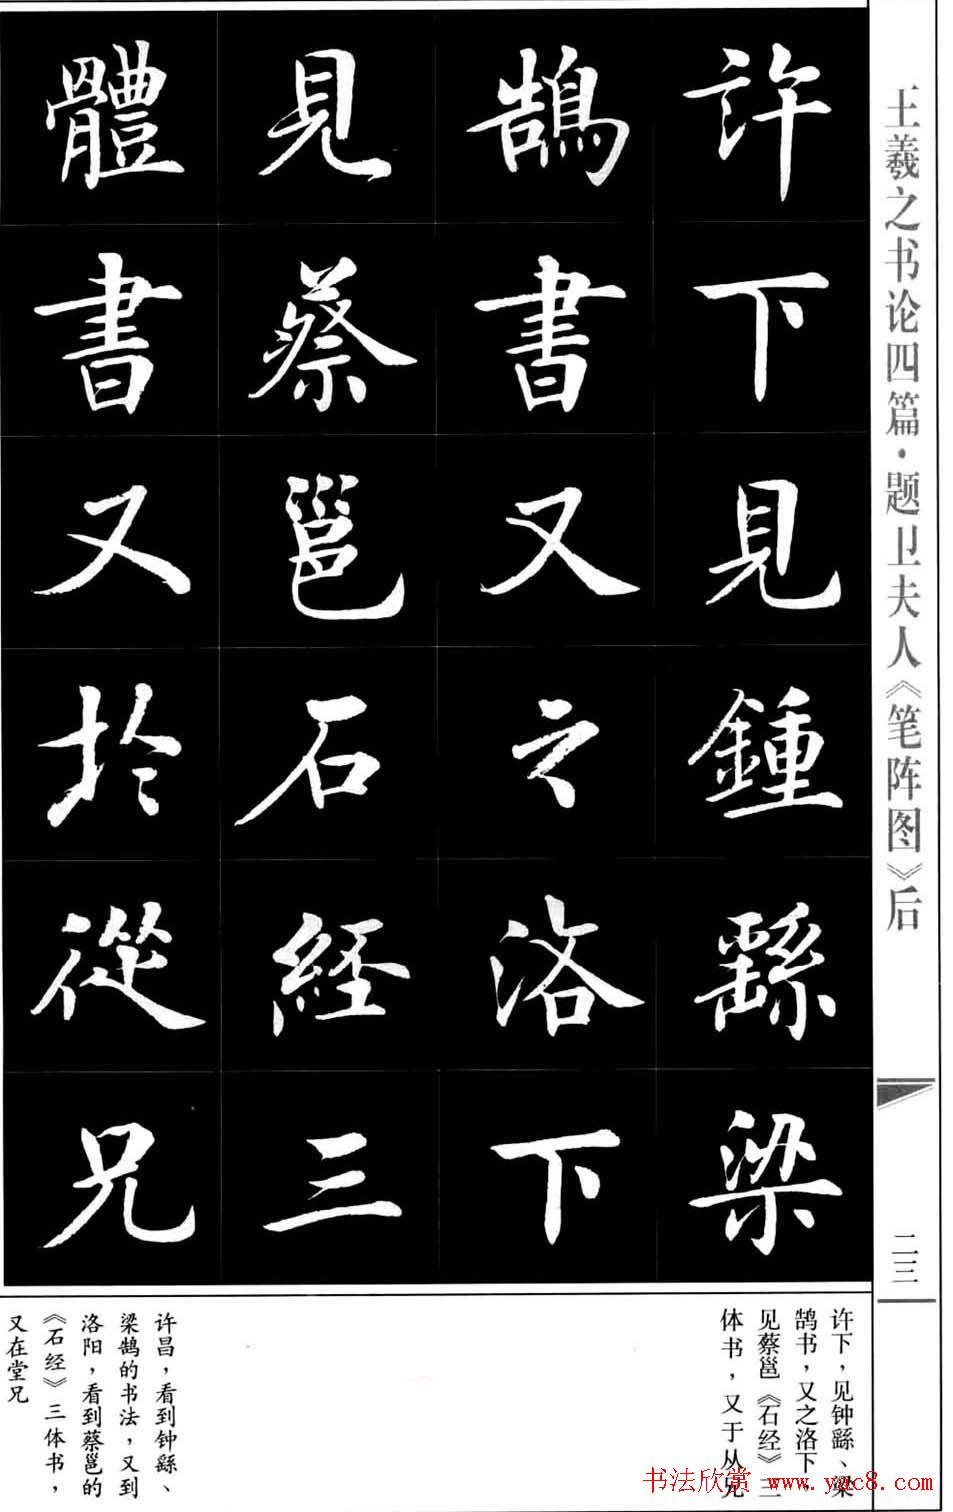 許下見鍾繇梁
鵠書又之洛下
見蔡邕石經三
體書又於從兄
王羲之书论四篇·题卫夫人《笔阵图》后
二三
许下，见钟繇、梁
鹄书，又之洛下，
见蔡邕《石经》三
体书，又于从兄
许昌，看到钟繇、
梁鹄的书法，又到
洛阳，看到蔡邕的
《石经》三体书，
又在堂兄
书法欣赏 www.yac8.com